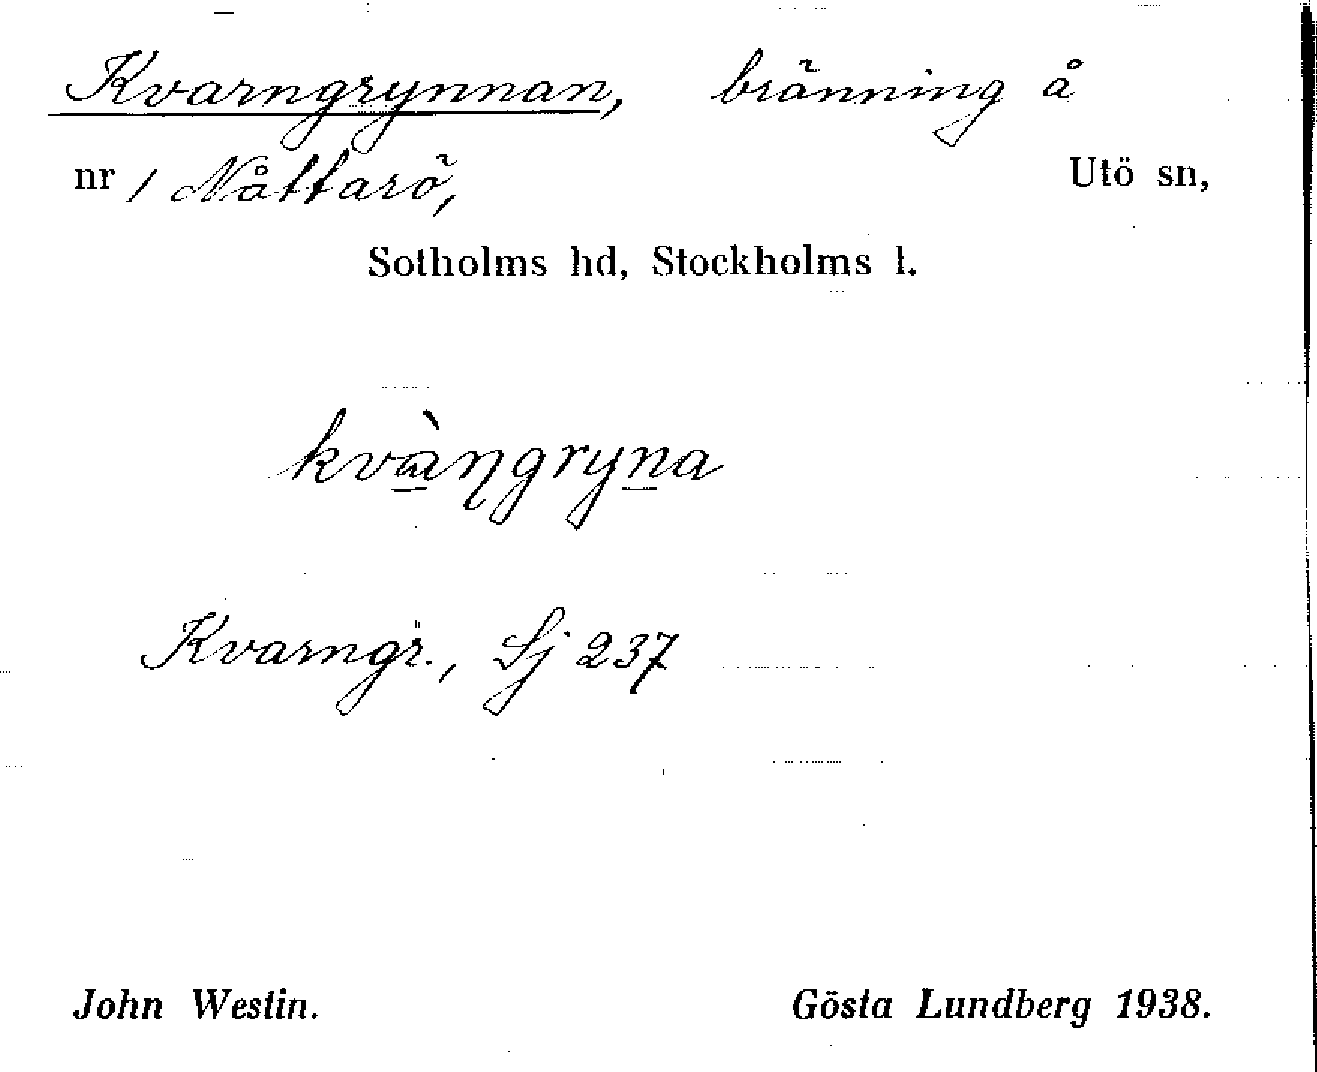 Kvarngrynnan, bränning å
nr 1 Nåttarö, Utö sn,
Sotholms hd, Stockholms l.
kvàṇgryna
Kvarngr., Sj 237
John Westin. Gösta Lundberg 1938.